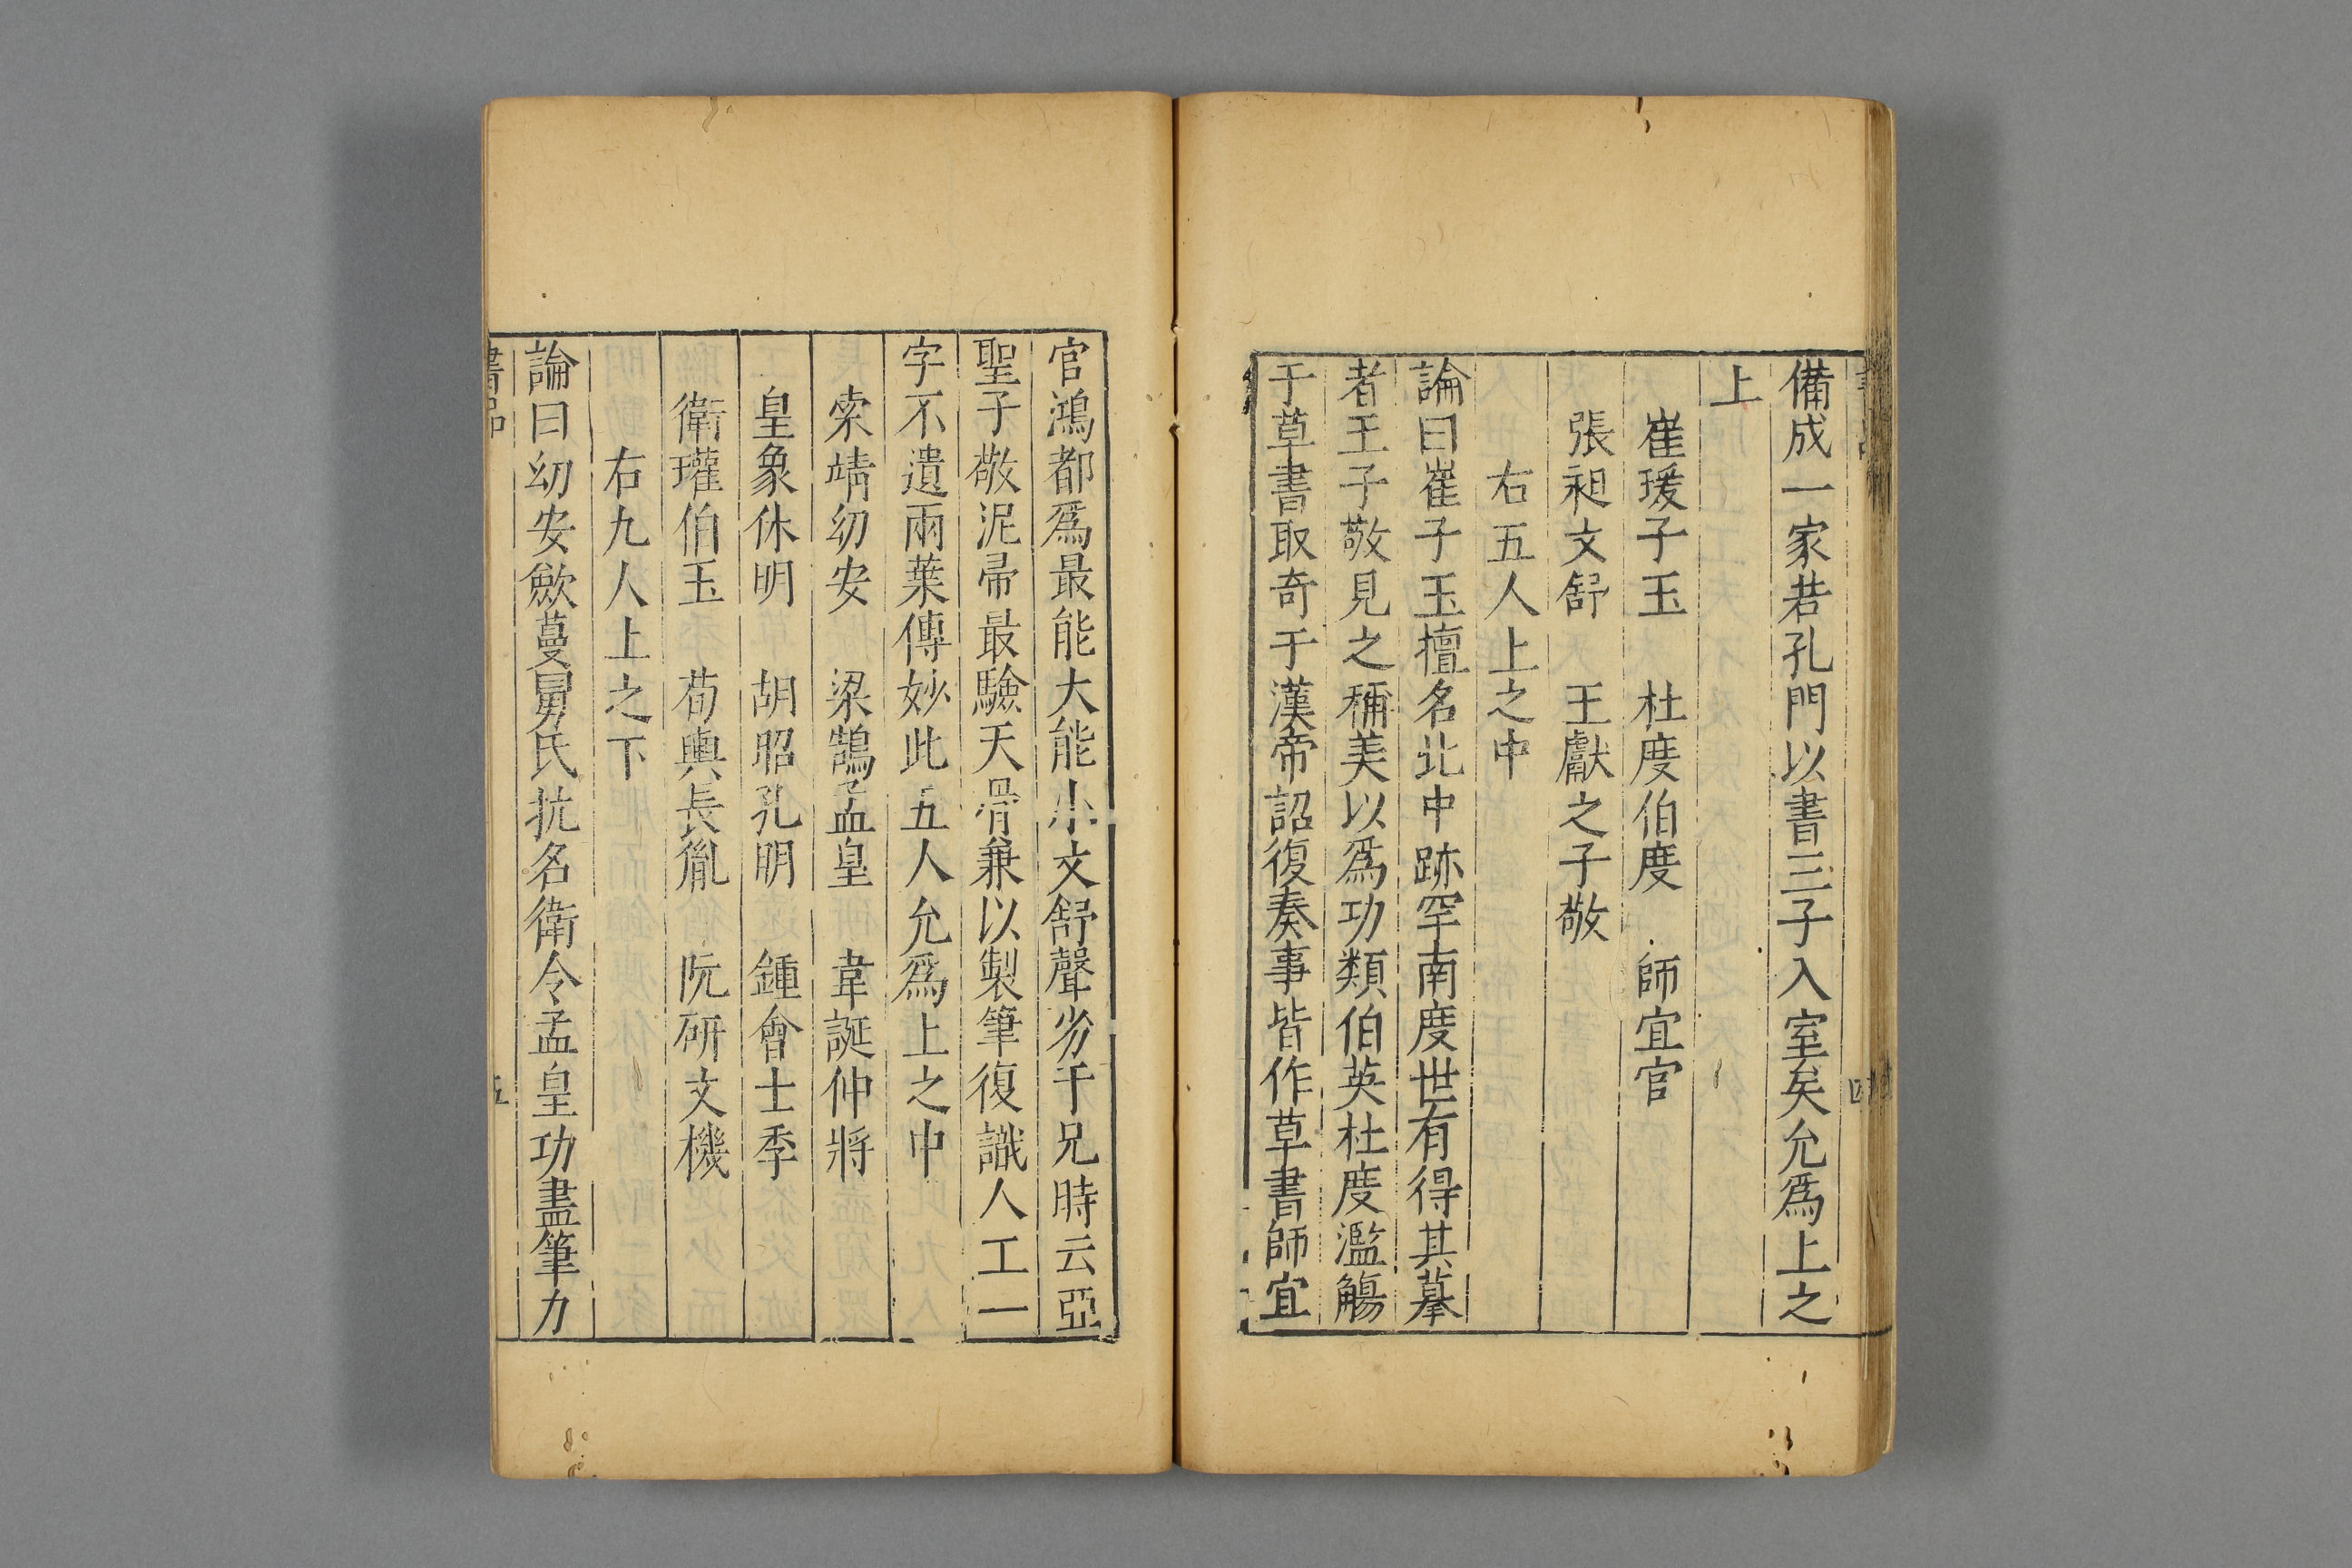 備成一家若孔門以書三子入室矣允爲上之
上
崔瑗子玉　杜度伯度　師宜官
張昶文舒　王獻之子敬
右五人上之中
論曰崔子玉擅名北中跡罕南度世有得其摹
者王子敬見之稱美以爲功類伯英杜度濫觴
于草書取奇于漢帝詔復奏事皆作草書師宜
官鴻都爲最能大能小文舒聲劣于兄時云亞
聖子敬泥帚最驗天骨兼以製筆復識人工一
字不遺兩葉傳妙此五人允爲上之中
索靖幼安　梁鵠孟皇　韋誕仲將
皇象休明　胡昭孔明　鍾會士季
衛瓘伯玉　荀輿長胤　阮研文機
右九人上之下
論曰幼安歛蔓舅氏抗名衛令孟皇功盡筆力
書品
五